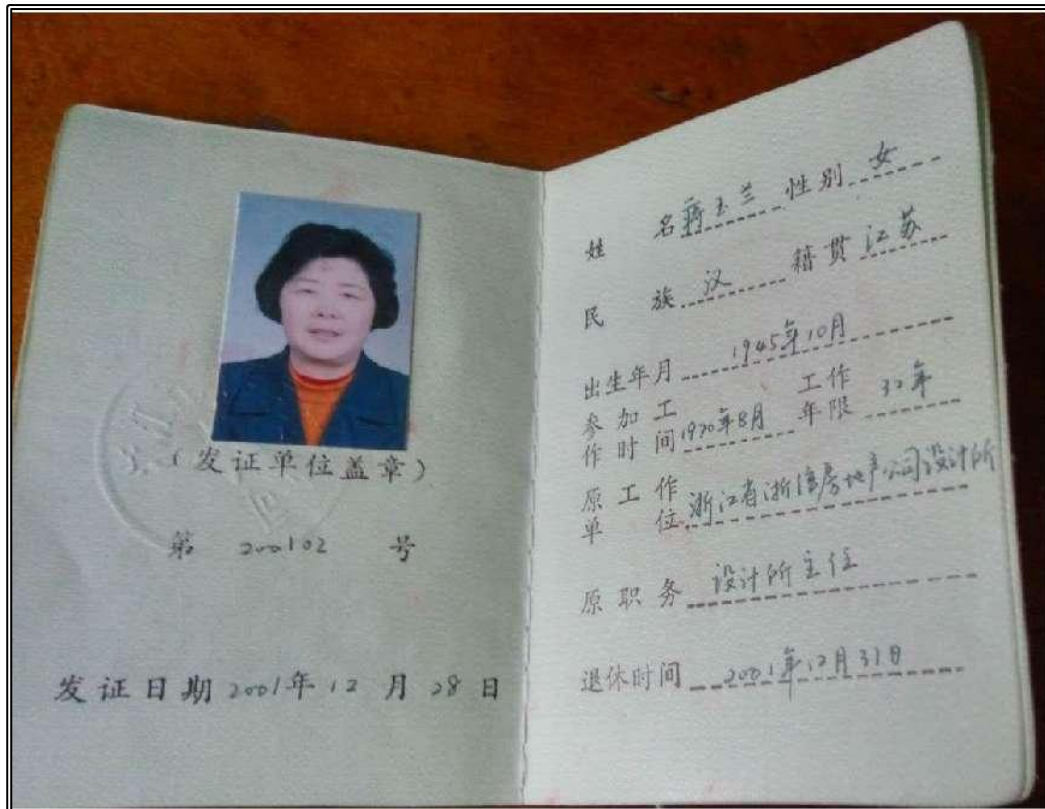 （发证单位盖章）
第 200102 号
发证日期 2001年 12 月 28 日
姓 名 蒋玉兰 性别 女
民 族 汉 籍贯 江苏
出生年月 1945年10月
参加工作时间 1970年8月 工作年限 32年
原工作单位 浙江省浙信房地产公司设计所
原职务 设计所主任
退休时间 2001年12月31日